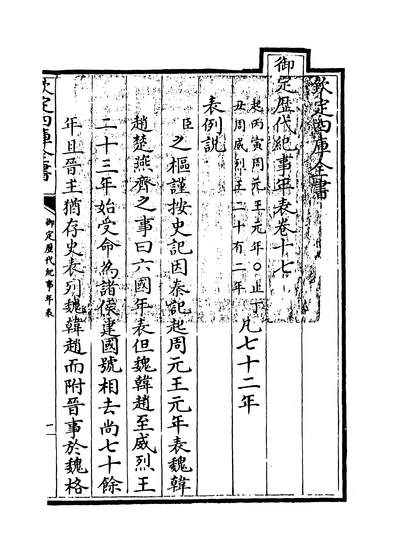 欽定四庫全書
御定歷代紀事年表卷十七
起丙寅周元王元年〇止丁
丑周威烈王二十有二年
凡七十二年
表例說
臣之樞謹按史記因秦記起周元王元年表魏韓
趙楚燕齊之事曰六國年表但魏韓趙至威烈王
二十三年始受命為諸侯建國號相去尚七十餘
年且晉主猶存史表列魏韓趙而附晉事於魏格
欽定四庫全書
御定歷代紀事年表
一